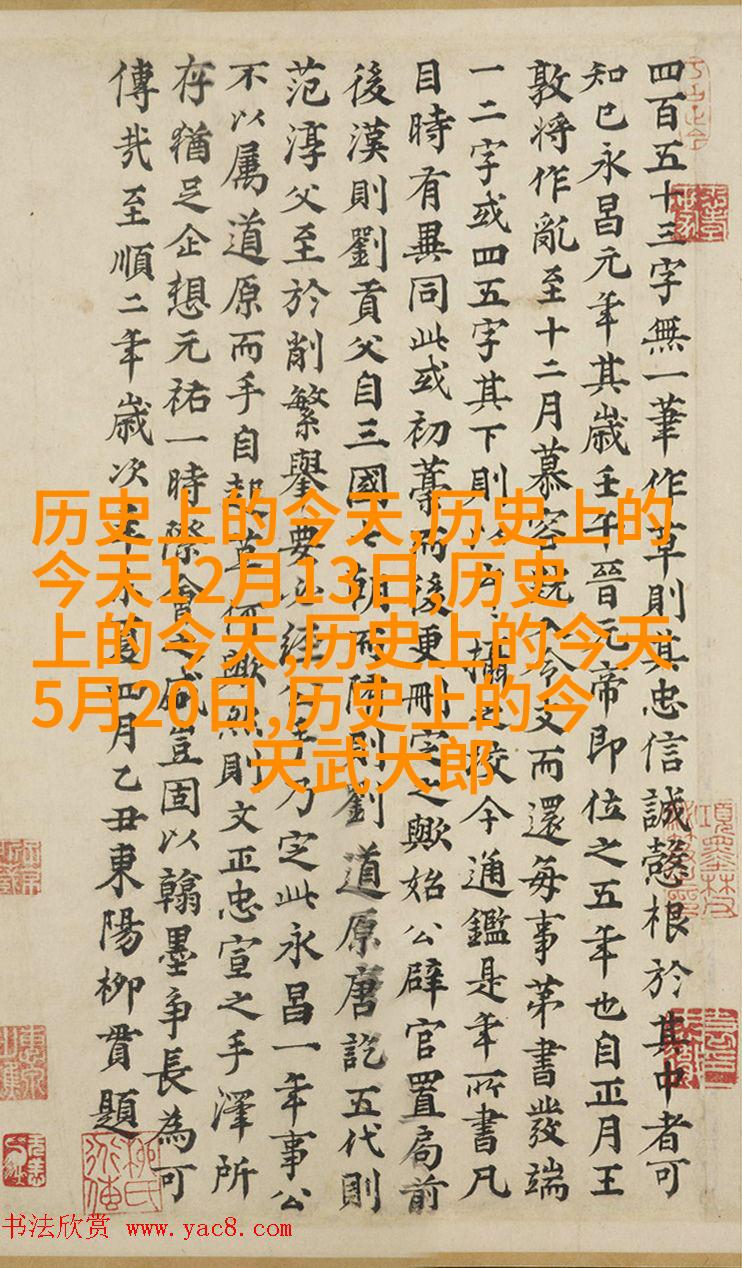 四百五十三字無一筆作草則其忠信誠慤根於其中者可
知已永昌元年其歲壬午晉元帝即位之五年也自正月王
敦將作亂至十二月慕容廆入令支而還每事第書發端
一二字或四五字其下則以攝之校今通鑑是年所書凡
目時有異同此或初藁而後更刪定之歟始公辟官置局前
後漢則劉貢父自三國七朝而隋則劉道原唐訖五代則
范淳父至於削繁舉要必經公手乃定此永昌一年事公
不以屬道原而手自起草何歟然則文正忠宣之手澤所
存猶足企想元祐一時際會之盛豈固以翰墨爭長為可
傳哉至順二年歲次辛未夏四月乙丑東陽柳貫題
历史上的今天,历史上的
今天12月13日,历史
上的今天,历史上的今天
5月20日,历史上的今
天武大郎
书法欣赏 www.yac8.com